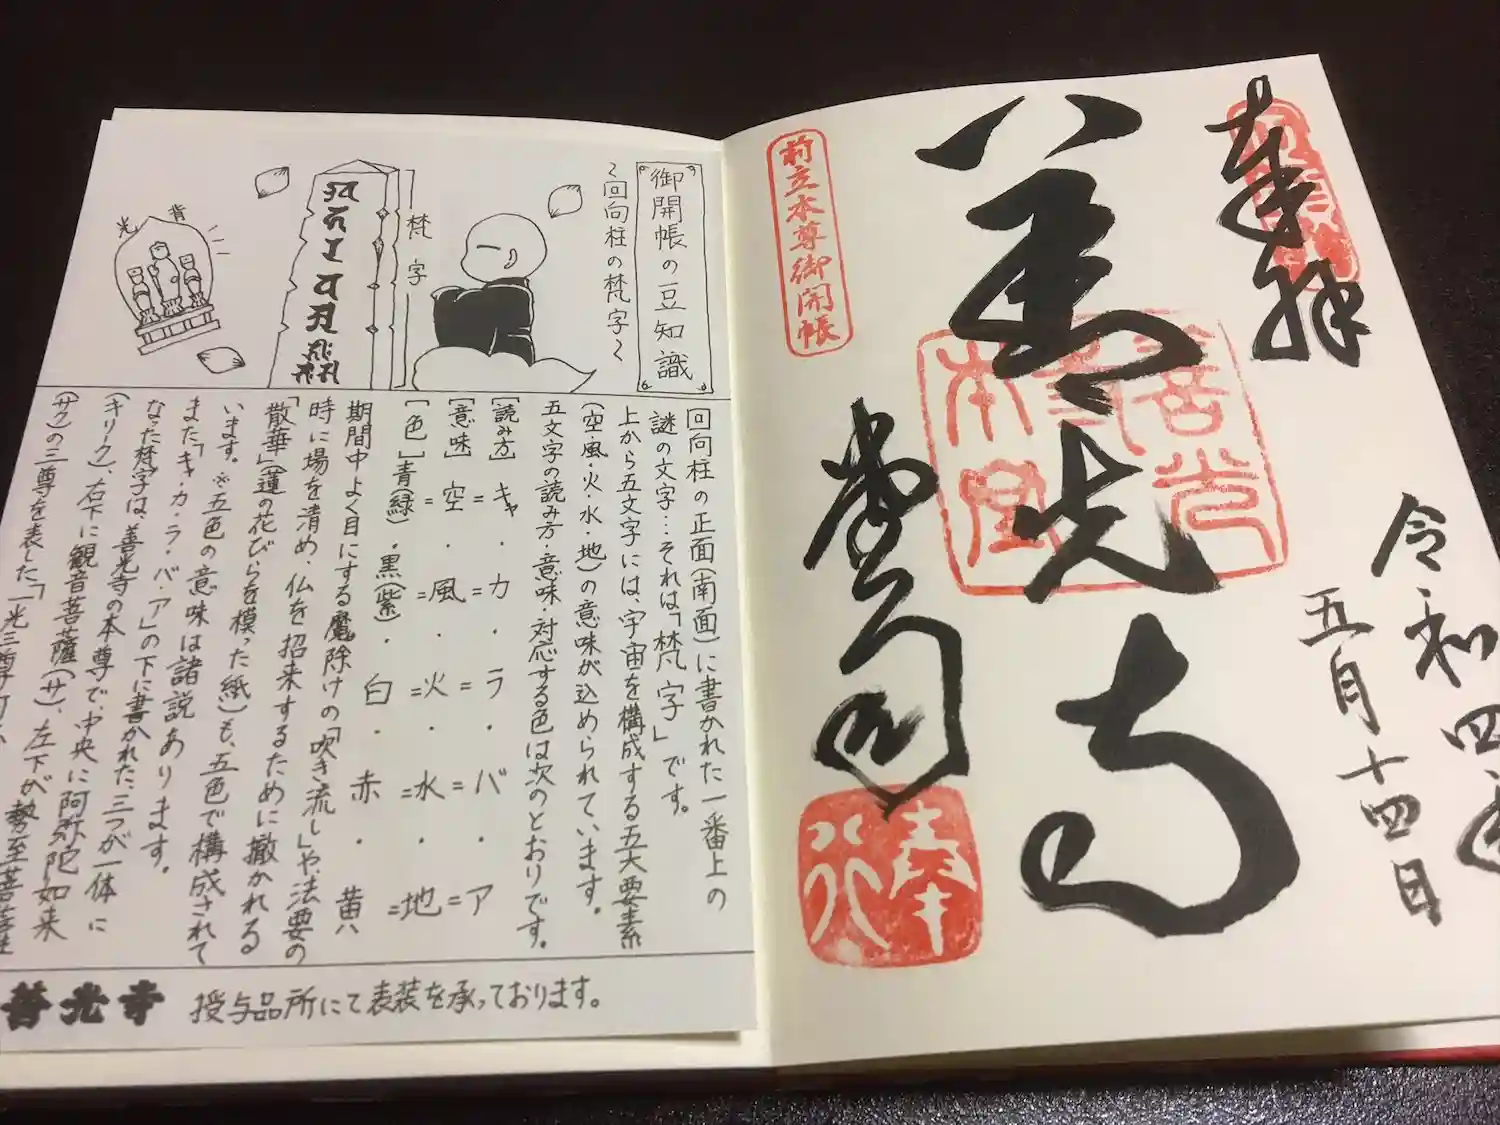 奉拝
令和四年
五月十四日
善光寺
堂司
前立本尊御開帳
善光寺本堂
奉行
御開帳の豆知識
〜回向柱の梵字〜
梵字
背
光
回向柱の正面(南面)に書かれた一番上の
謎の文字…それは「梵字」です。
上から五文字には、宇宙を構成する五大要素
(空・風・火・水・地)の意味が込められています。
五文字の読み方・意味・対応する色は次のとおりです。
[読み方] キャ・カ・ラ・バ・ア
[意味] 空・風・火・水・地
[色] 青(緑)・黒(紫)・白・赤・黄
期間中よく目にする魔除けの「吹き流し」や、法要の
時に場を清め、仏を招来するために撒かれる
「散華」(蓮の花びらを模った紙)も、五色で構成されて
います。 ※五色の意味は諸説あります。
また「キャ・カ・ラ・バ・ア」の下に書かれた三つが一体に
なった梵字は、善光寺の本尊で、中央に阿弥陀如来
(キリーク)、右下に観音菩薩(サ)、左下が勢至菩薩
(サク)の三尊を表した「一光三尊
善光寺 授与品所にて表装を承っております。